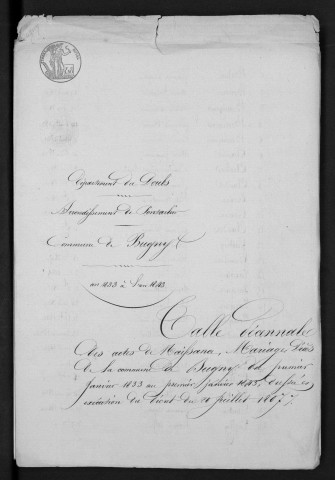 Département du Doubs
Arrondissement de Pontarlier
Commune de Bugny
an 1833 à l'an 1843
Table Décennale
des actes de Naissance, Mariages Décès
de la commune de Bugny du premier
Janvier 1833 au premier Janvier 1843, dressée en
exécution du Décret du 20 Juillet 1807